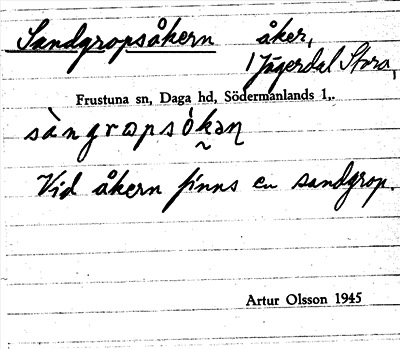 Sandgropsåkern åker,
i Jägerdal Stora,
Frustuna sn, Daga hd, Södermanlands l,.
sàngrɷpsókaƞ
Vid åkern finns en sandgrop.
Artur Olsson 1945